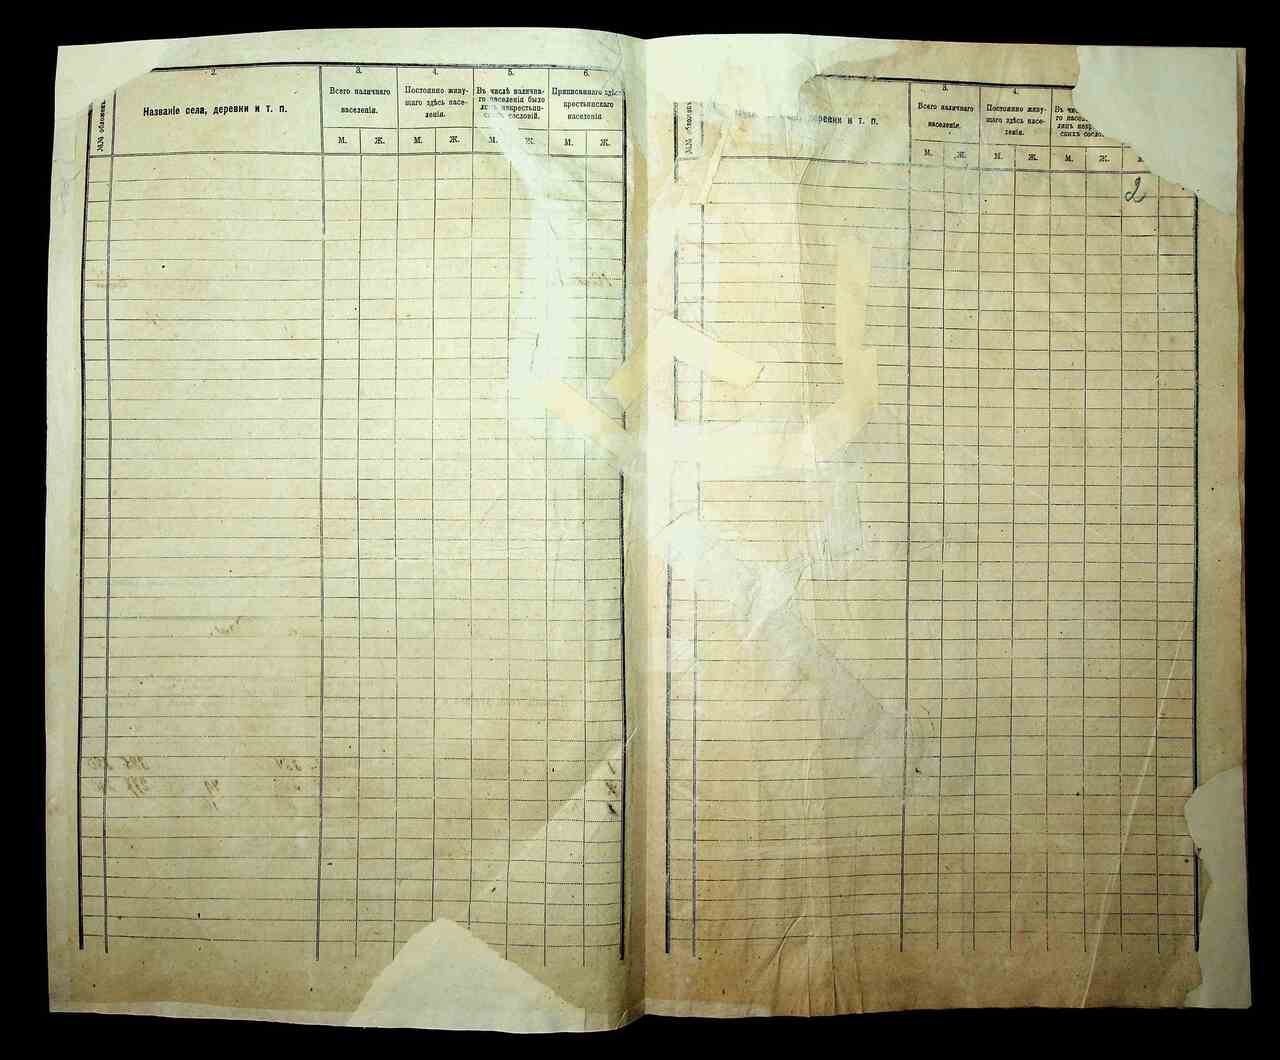 2.
3.
4.
5.
6.
№№ обложен.
Названіе села, деревни и т. п.
Всего наличнаго
населенія.
Постоянно живу-
щаго здѣсь насе-
ленія.
Въ числѣ налична-
го населенія было
лицъ некрестьян-
скихъ сословій.
Приписаннаго здѣсь
крестьянскаго
населенія
М.
Ж.
М.
Ж.
М.
Ж.
М.
Ж.
3.
4.
деревни и т. п.
Всего наличнаго
населенія.
Постоянно живу-
щаго здѣсь насе-
ленія.
Въ
го
лицъ
скихъ
М.
Ж.
М.
Ж.
М.
Ж.
2